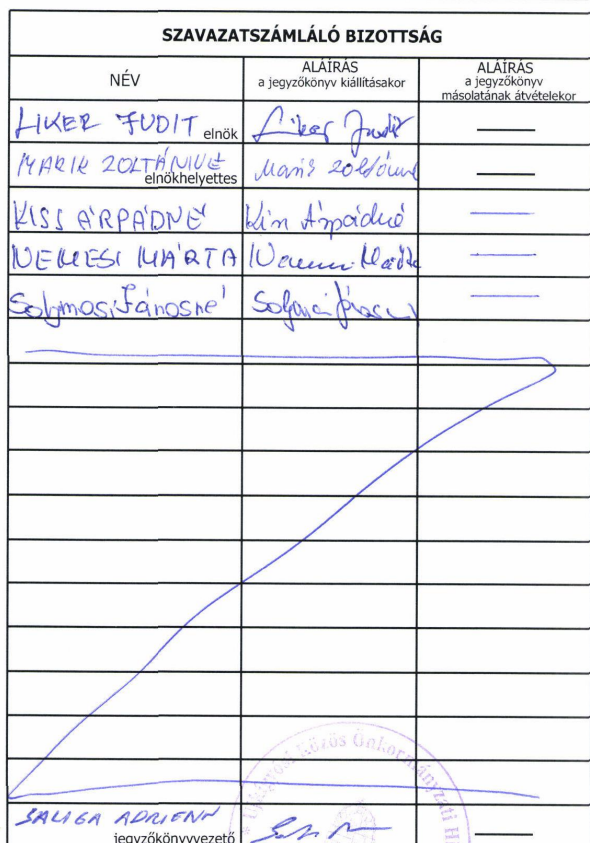 SZAVAZATSZÁMLÁLÓ BIZOTTSÁG
NÉV
ALÁÍRÁS
a jegyzőkönyv kiállításakor
ALÁÍRÁS
a jegyzőkönyv
másolatának átvételekor
LIKER JUDIT elnök Liker Judit
MARIK ZOLTÁNNÉ
elnökhelyettes
KISS ÁRPÁDNÉ Kiss Árpádné
NEMESI MÁRTA Nemesi Márta
Solymosi Jánosné
SALIGA ADRIENN
jegyzőkönyvvezető
Közös Önkormányzati